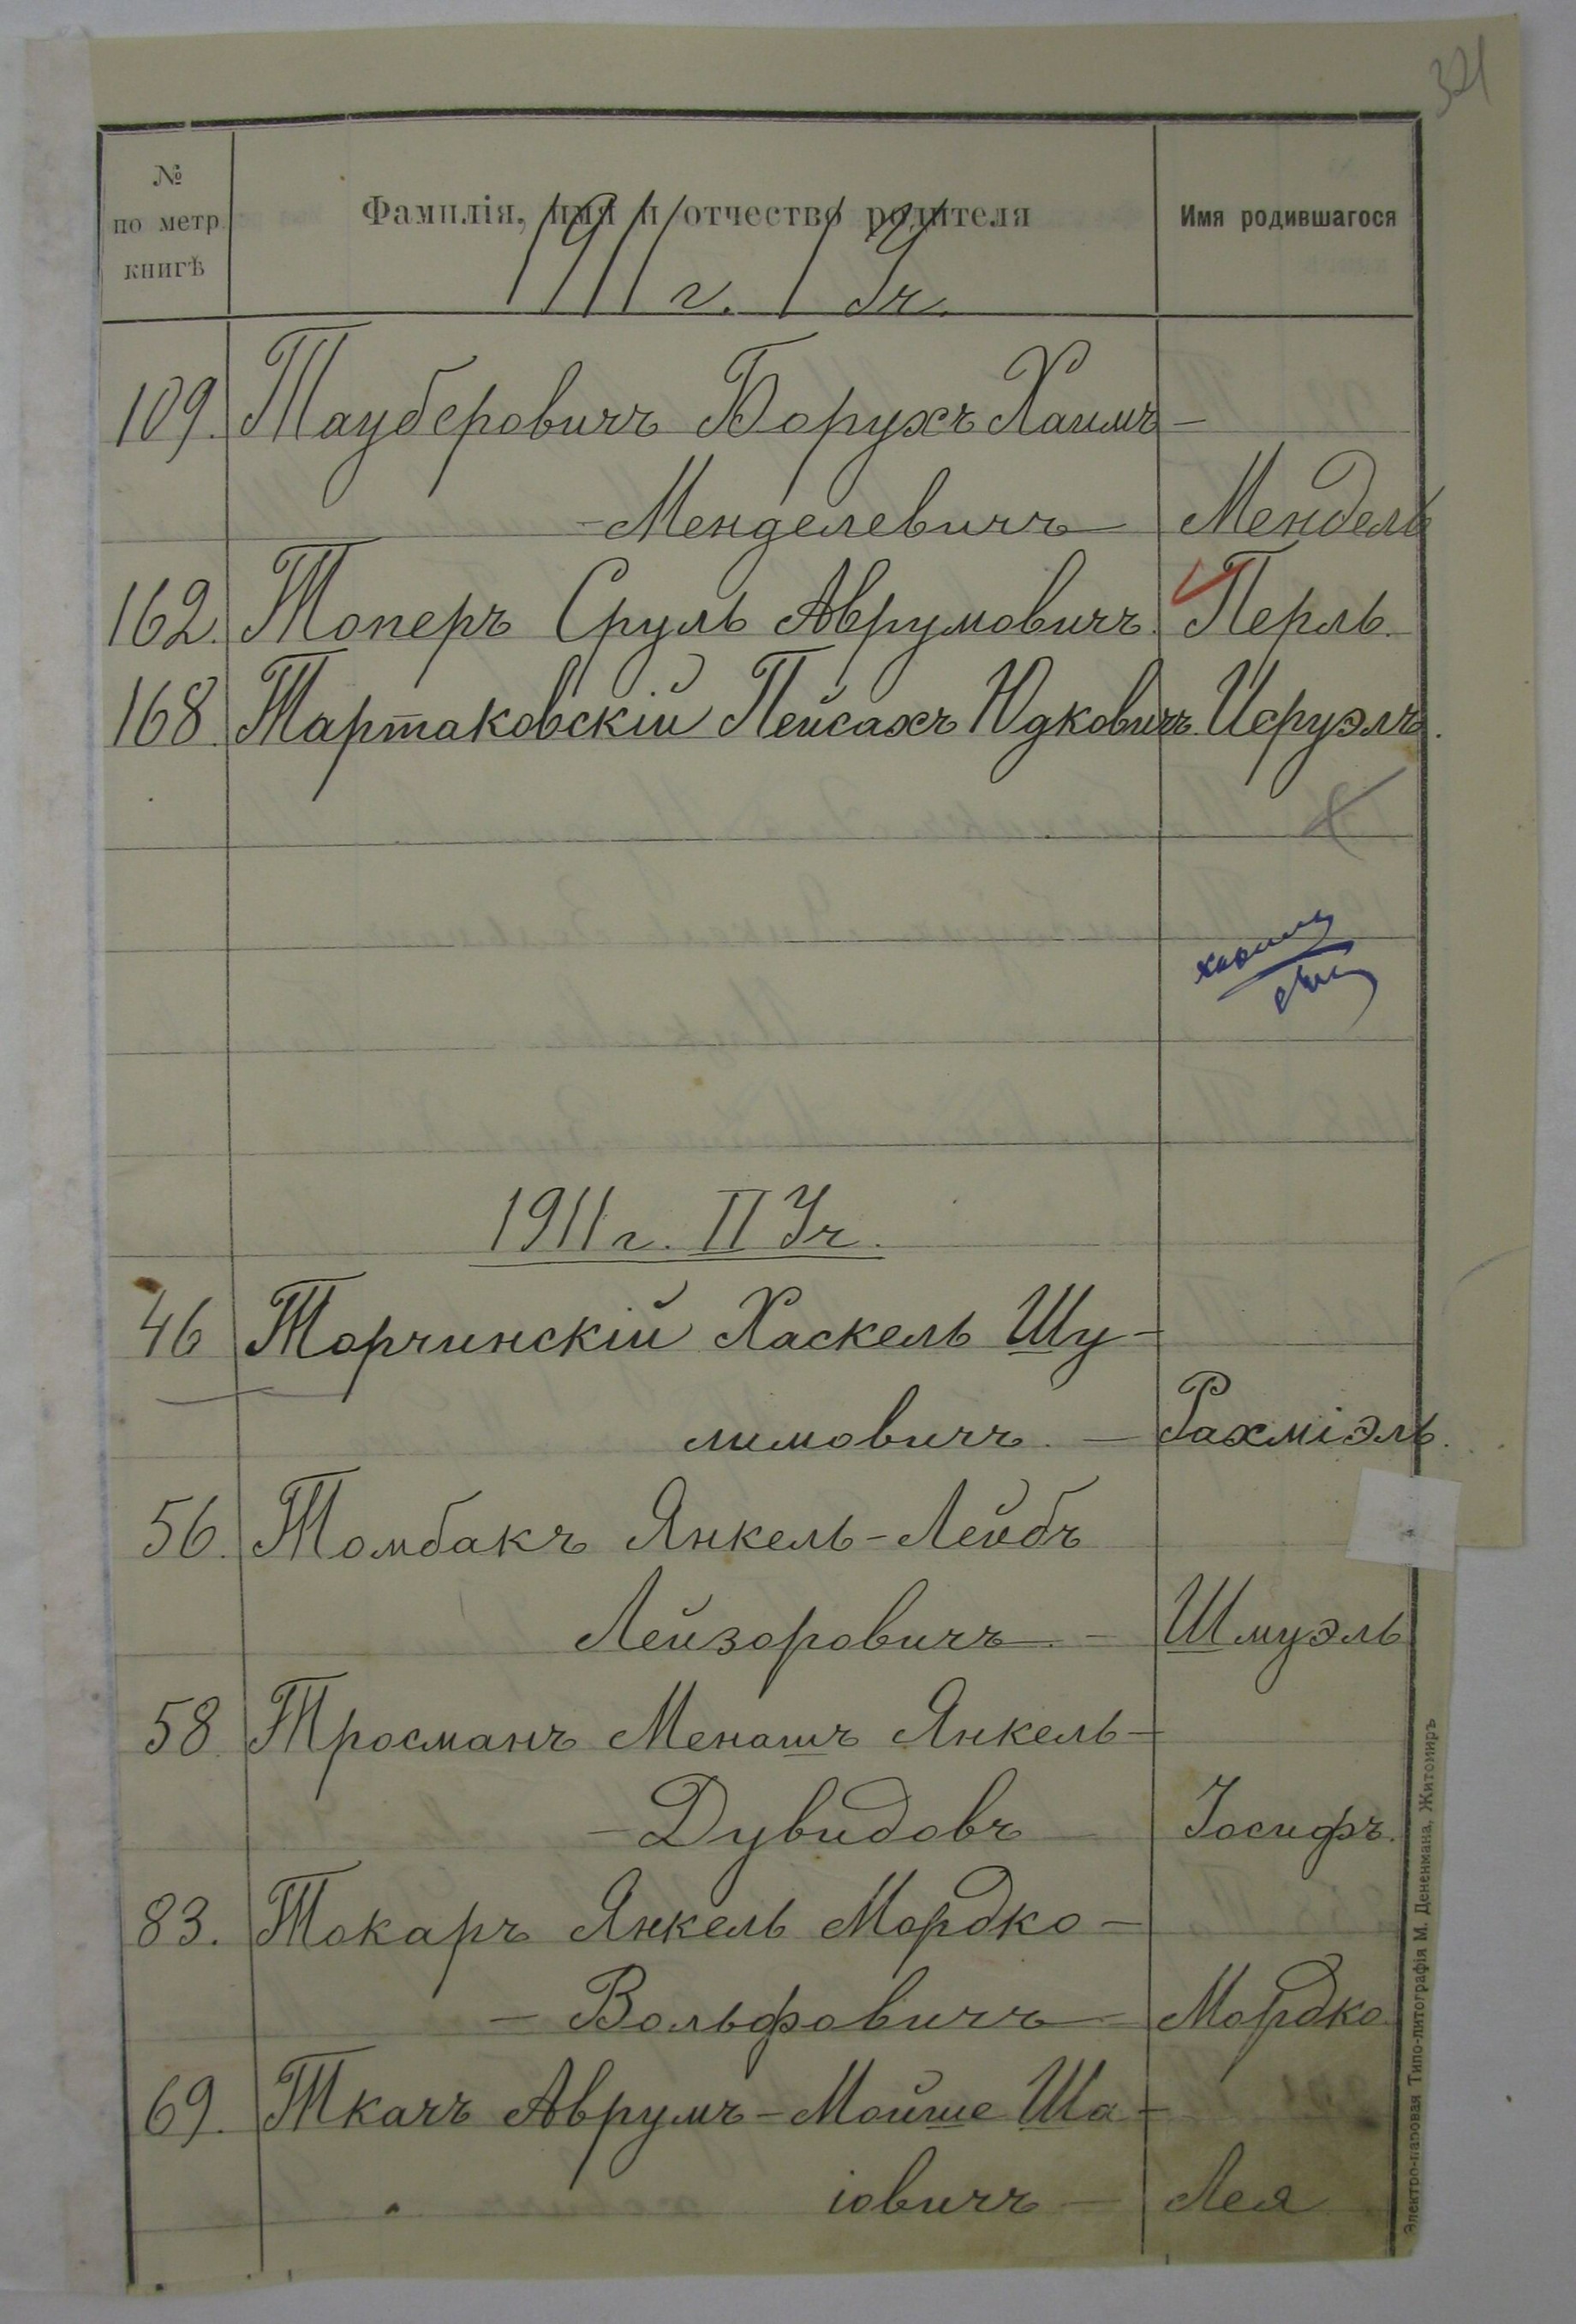 321
№
по метр.
книгѣ
Фамилія, имя и отчество родителя
Имя родившагося
1911 г. I Уч.
109. Тауберовичъ Борухъ Хаимъ-
-Менделевичъ Мендель
162. Топеръ Сруль Аврумовичъ. Перль.
168. Тартаковскій Пейсахъ Юдковичъ. Исруэлъ.
1911 г. II Уч.
46 Торчинскій Хаскель Шу-
лимовичъ. - Рахміэль.
56. Томбакъ Янкель-Лейбъ
Лейзоровичъ. - Шмуэль
58. Тросманъ Менашъ Янкель-
-Дувидовъ Іосифъ.
83. Токаръ Янкель Мордко-
- Вольфовичъ Мордко.
69. Ткачъ Аврумъ-Мойше Ша-
іовичъ - Лея
Электро-паровая Типо-литографія М. Дененмана, Житомиръ